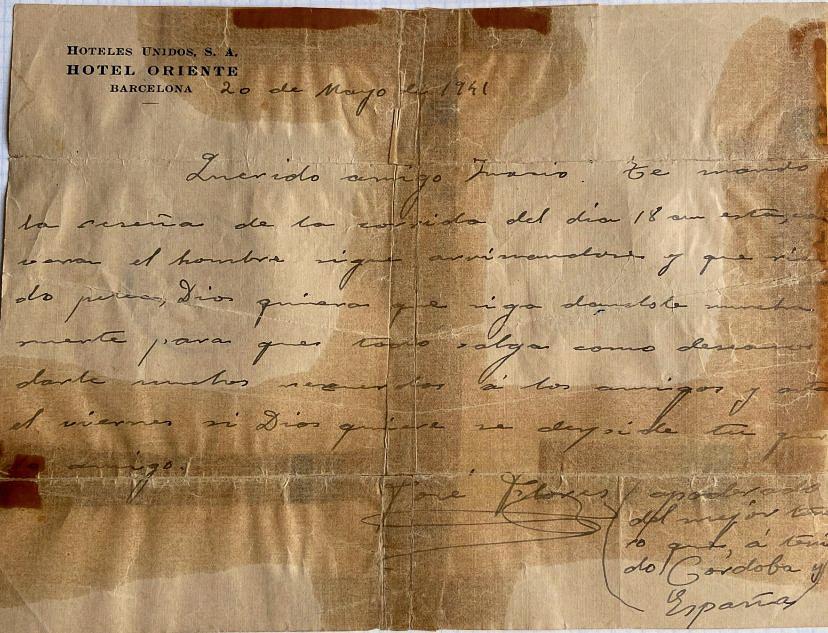 HOTELES UNIDOS, S. A.
HOTEL ORIENTE
BARCELONA
20 de Mayo de 1941
Querido amigo Te mando
la reseña de la corrida del dia 18 en esta,
vera el hombre sigue arrimandose y que
do Dios quiera que siga dandole mucha
suerte para que todo salga como deseamos
darle muchos recuerdos á los amigos y
el viernes si Dios quiere se despide tu
amigo.
José Flores (apoderado
del mejor
o que á teni
do Córdoba y
España)